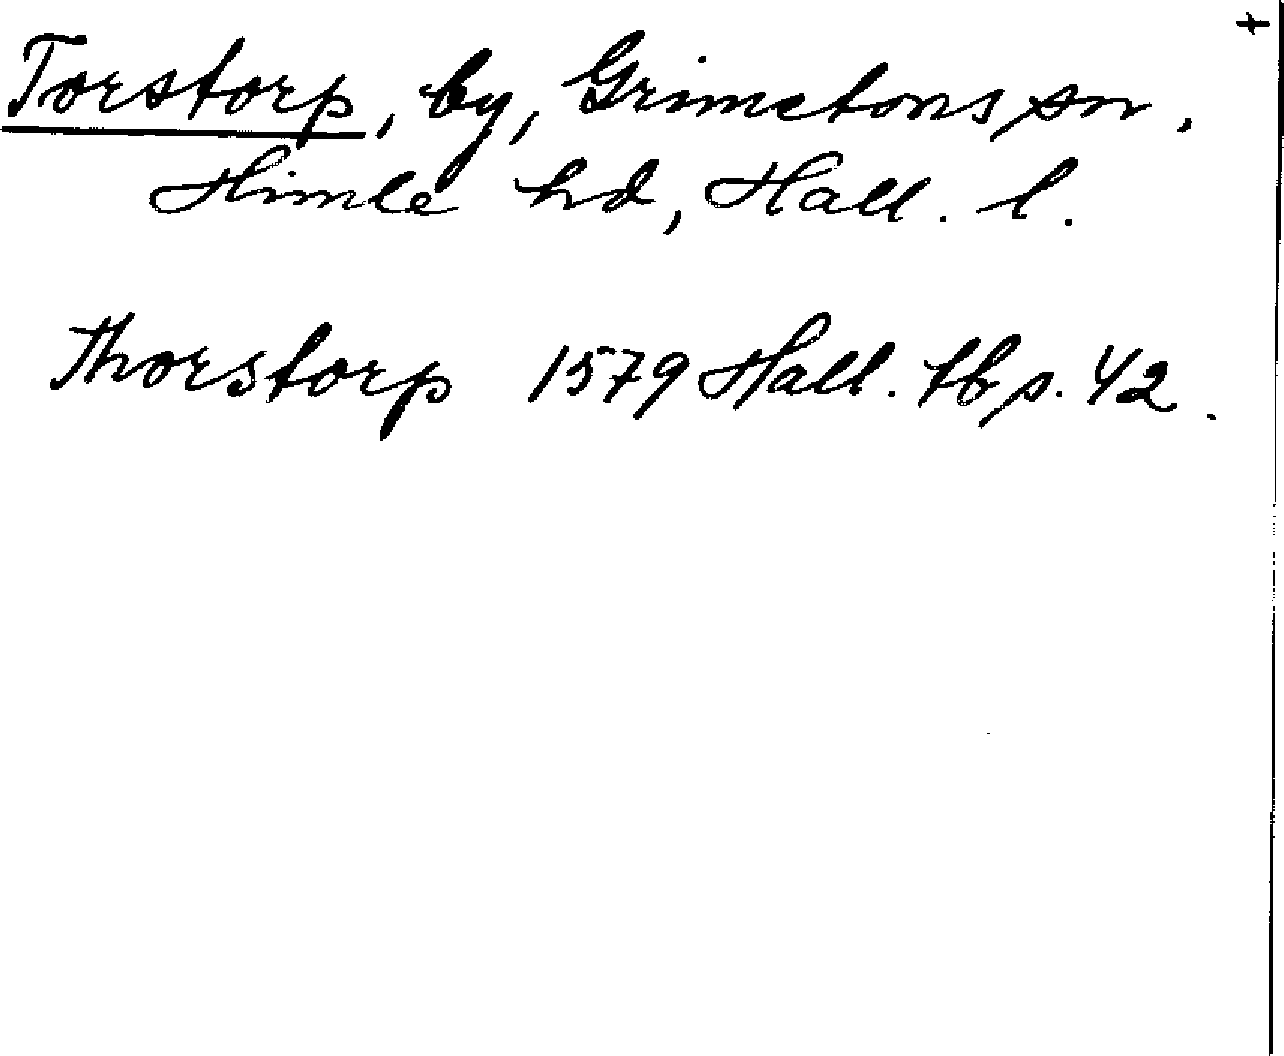 +
Torstorp, by, Grimetons sn.
Himle hd, Hall. l.
Thorstorp 1579 Hall. tb s. 42.